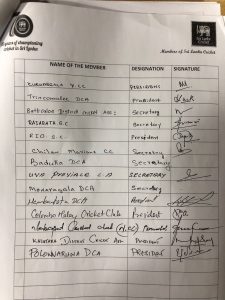 years of championing
cricket in Sri Lanka
Sri Lanka
Cricket
Member of Sri Lanka Cricket
NAME OF THE MEMBER DESIGNATION SIGNATURE
KURUNEGALA Y.CC PRESIDENT
Trincomalee DCA President
Batticaloa District Secretary
RAJARATA S.C. Secretary
RIO S.C. President
Chilaw Marians C.C Secretary
Badulla DCA Secretary
UVA PROVINCE C.A SECRETARY
Monaragala DCA Secretary
Hambantota DCA President
Colombo Malay Cricket Club President
Cricket Club (NCC)
KALUTARA DISTRICT CRICKET ASS President
POLONNARUWA DCA PRESIDENT